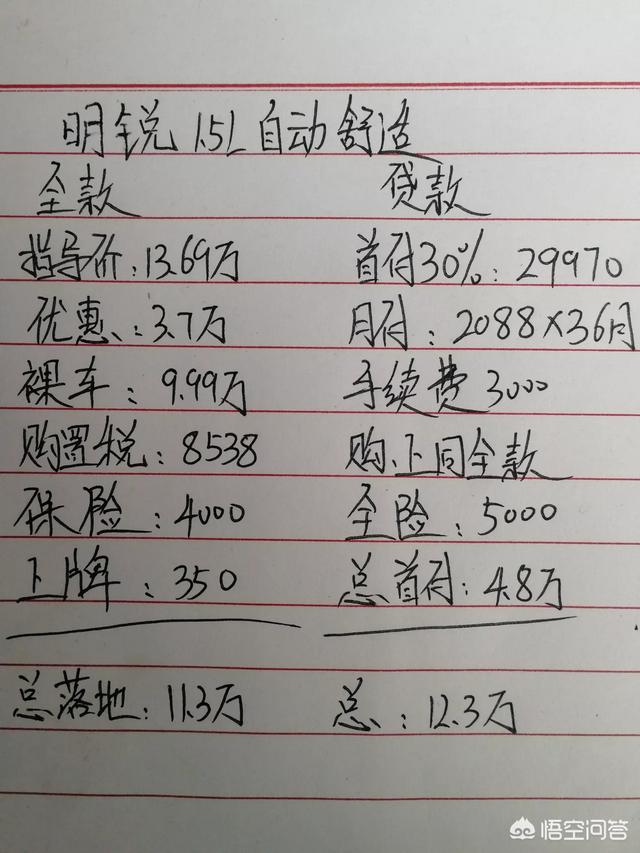 明锐 1.5L自动舒适
全款 贷款
指导价:13.69万 首付30%:29970
优惠:3.7万 月付:2088×36月
裸车:9.99万 手续费3000
购置税:8538 购、上同全款
保险:4000 全险:5000
上牌:350 总首付:4.8万
总落地:11.3万 总:12.3万
悟空问答